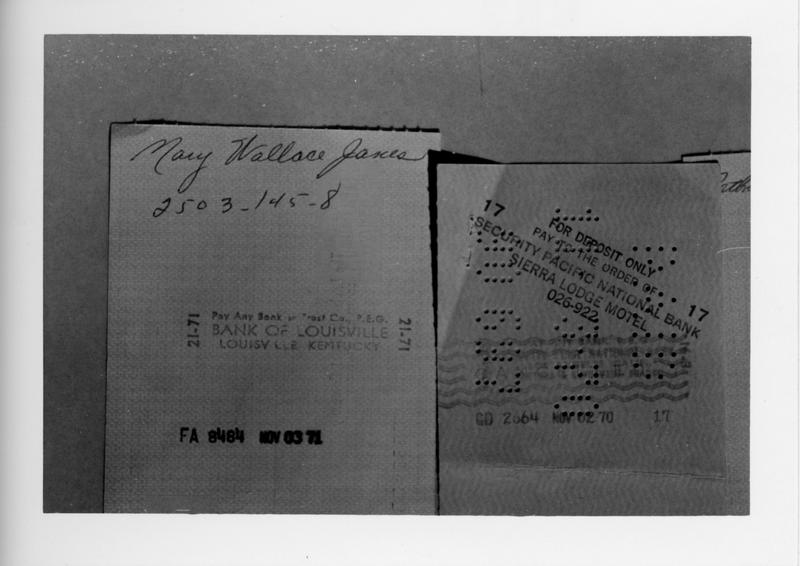 Mary Wallace Janes
2503-145-8
21-71
Pay Any Bank or Trust Co., P.E.G.
BANK OF LOUISVILLE
LOUISVILLE, KENTUCKY
21-71
FA 8484 NOV 03 71
17
FOR DEPOSIT ONLY
PAY TO THE ORDER OF
SECURITY PACIFIC NATIONAL BANK
SIERRA LODGE MOTEL
026-922
17
GD 2664 NOV 02 70 17